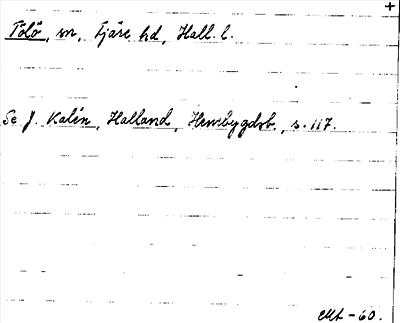 +
Tölö, sn, Fjäre hd, Hall. l.
Se J. Kalén, Halland, Hembygdsb., s. 117.
-60.